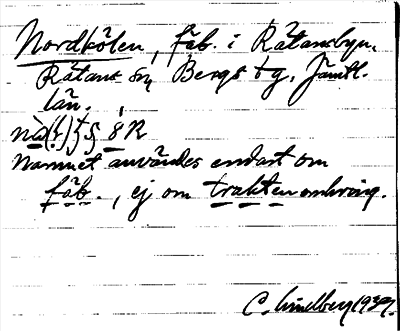 Nordkölen, fäb. i Rätansbyn,
Rätans sn Bergs tg, Jämtl.
län.
Namnet användes endast om
fäb., ej om trakten omkring.
C. Lindberg 1937.